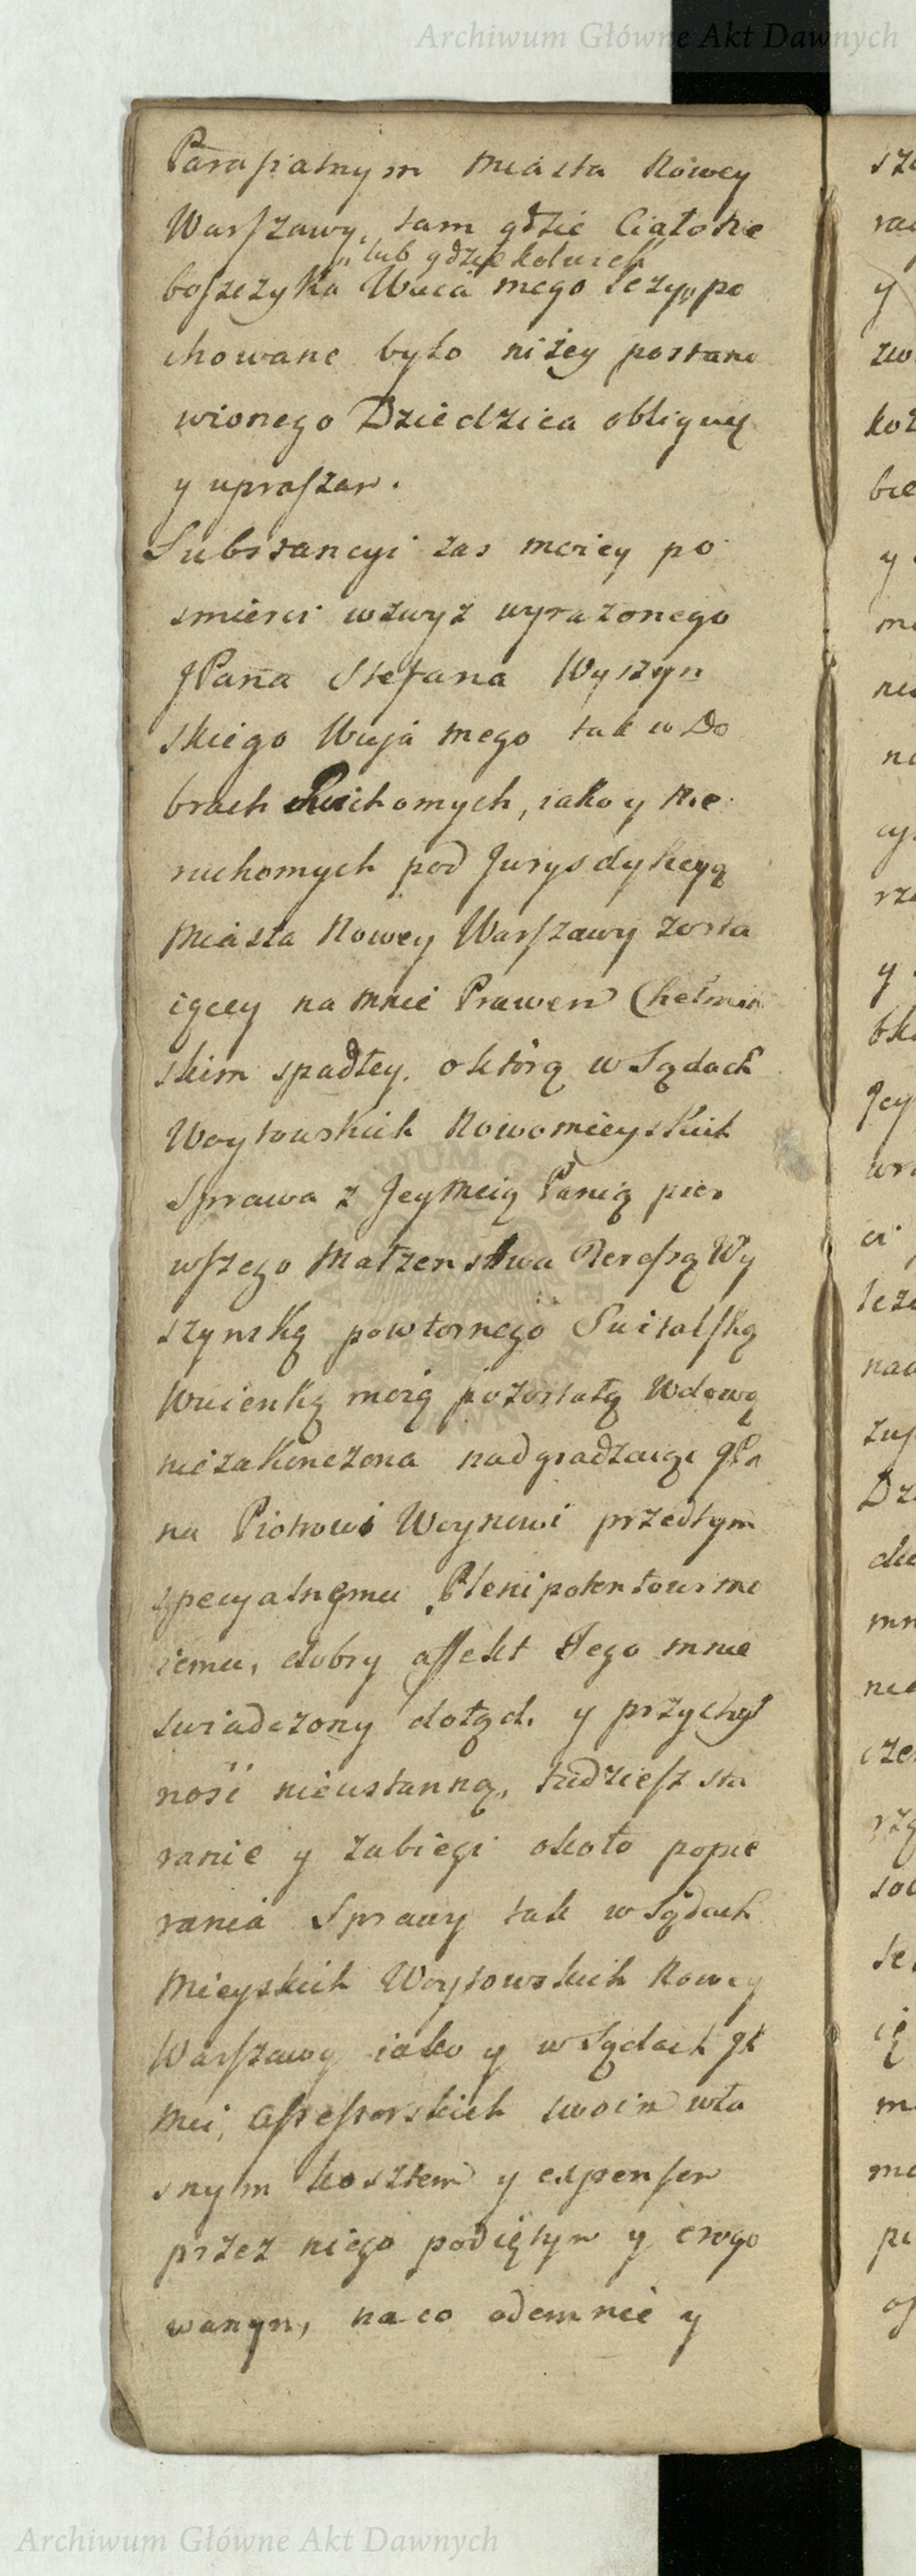 Archiwum Główne Akt Dawnych
Parafialnym Miasta Nowey
Warszawy, tam gdzie Ciało Nie
lub gdziekolwiek
boszczyka Wuia mego leży, po
chowane było niżey postano
wionego Dziedzica obliguię
y upraszam.
Substancyi zas moiey po
smierci wzwyż wyrażonego
JPana Stefana Wyszyn
skiego Wuja mego tak w Do
brach Ruchomych, iako y Nie
ruchomych pod Jurysdykcyą
Miasta Nowey Warszawy zosta
iącey na mnie Prawem Chełmin
skim spadłey, o którą w Sądach
Woytowskich Nowomieyskich
Sprawa z Jeymcią Panią pier
wszego Małżenstwa Teressą Wy
szynską powtornego Switalską
Wuienką moią pozostałą Wdową
niezakończona nadgradzaiąc JPa
nu Piotrowi Woynowi przedtym
specyalnemu Plenipotentowi mo
iemu, dobry affekt Jego mnie
swiadczony dotąd, y przychyl
ność nieustanną, tudziesz sta
ranie y zabiegi około popie
rania Sprawy tak w Sądach
Mieyskich Woytowskich Nowey
Warszawy iako y w Sądach JK
Mci, Assessorskich swoim wła
snym kosztem y expensem
przez niego podiętym y erogo
wanym, na co odemnie y
Archiwum Główne Akt Dawnych